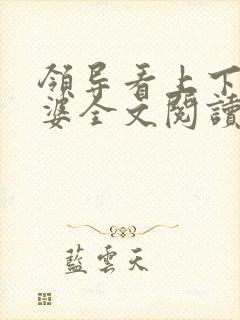 領导看上下
婆全文閱讀
藍雲天